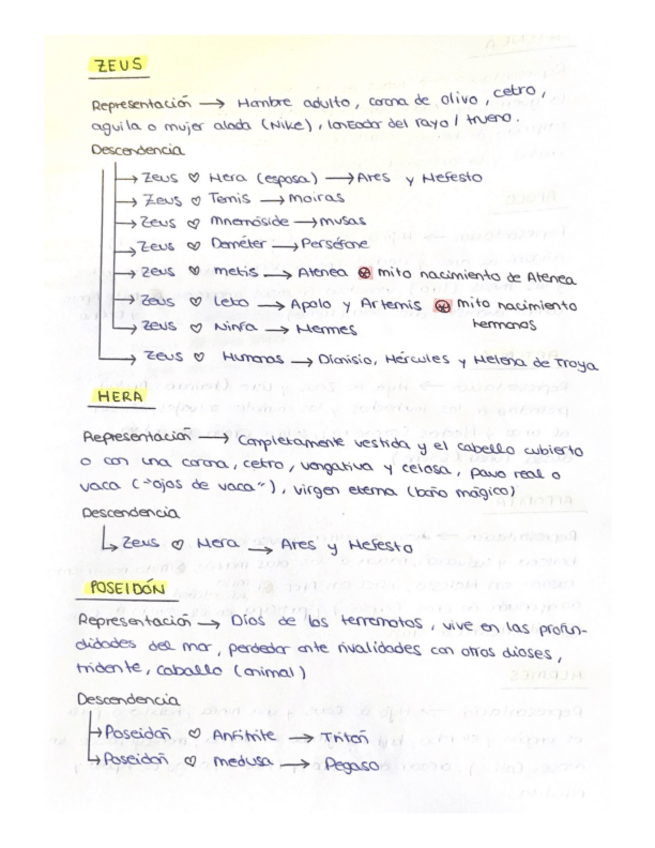 ZEUS
Representación → Hombre adulto, corona de olivo, cetro,
aguila o mujer alada (Nike), lanzador del rayo / trueno.
Descendencia
→ Zeus ♡ Hera (esposa) → Ares y Hefesto
→ Zeus ♡ Temis → Moiras
→ Zeus ♡ Mnemóside → musas
→ Zeus ♡ Deméter → Perséfone
→ Zeus ♡ metis → Atenea ⊛ mito nacimiento de Atenea
→ Zeus ♡ Leto → Apolo y Artemis ⊛ Mito nacimiento
hermanos
→ Zeus ♡ Ninfa → Hermes
→ Zeus ♡ Humanas → Dionisio, Hércules y Helena de Troya
HERA
Representación → Completamente vestida y el cabello cubierto
o con una corona, cetro, vengativa y celosa, pavo real o
vaca ("ojos de vaca"), virgen eterna (baño mágico)
Descendencia
↳ Zeus ♡ Hera → Ares y Hefesto
POSEIDÓN
Representación → Dios de los terremotos, vive en las profun-
didades del mar, perdedor ante rivalidades con otros dioses,
tridente, caballo (animal)
Descendencia
→ Poseidón ♡ Anfitrite → Tritón
→ Poseidón ♡ medusa → Pegaso